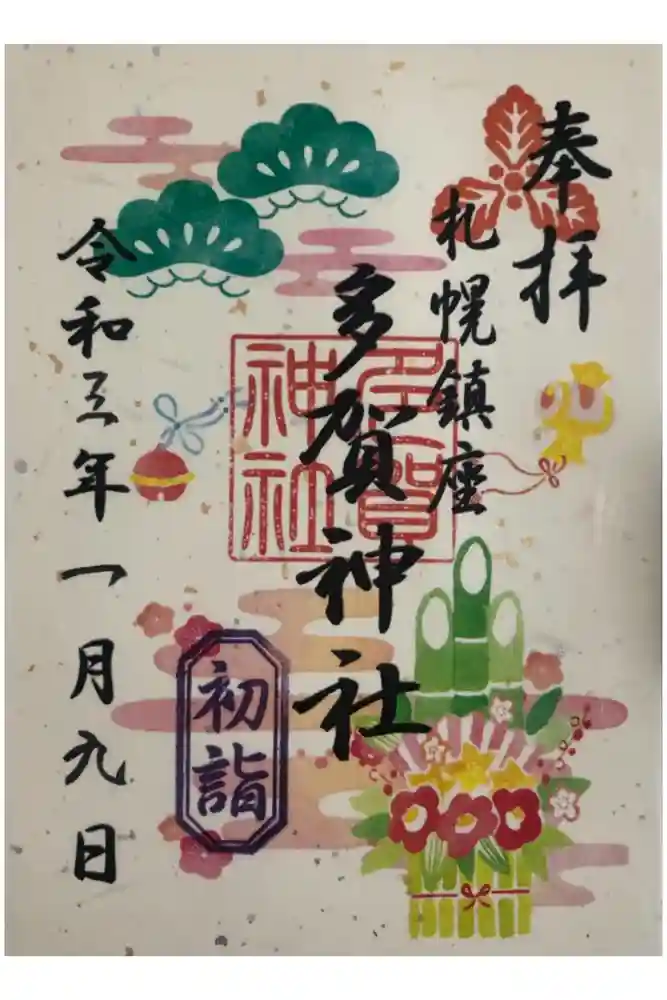 奉拝
札幌鎮座
多賀神社
多賀神社
初詣
令和三年一月九日